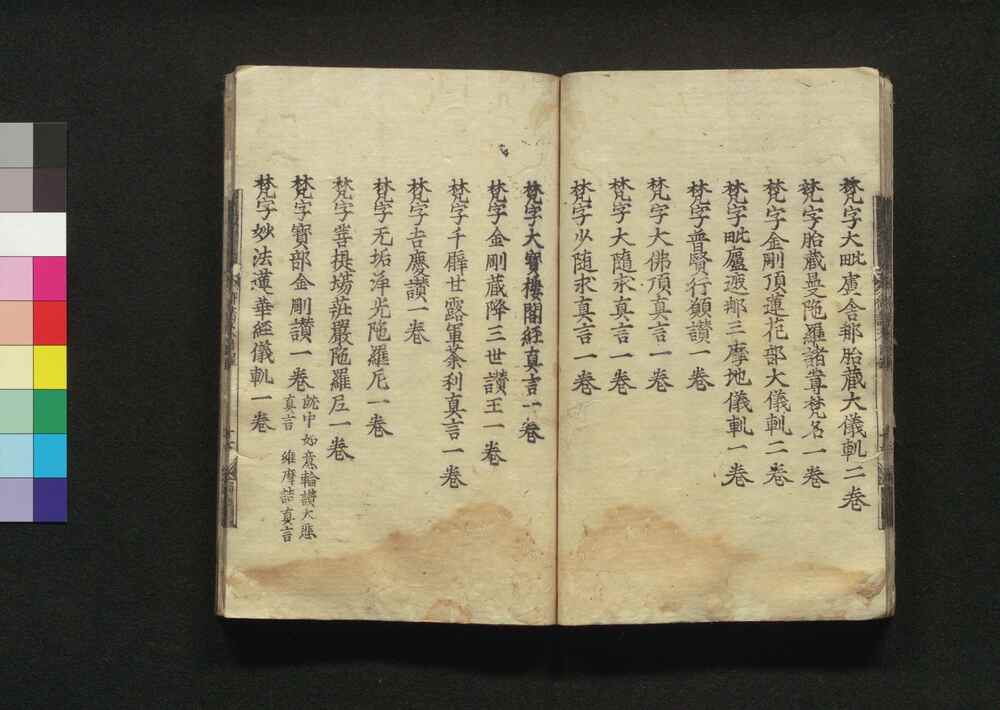 梵字大毗盧舎那胎蔵大儀軌二巻
梵字胎蔵曼陁羅諸尊梵名一巻
梵字金剛頂蓮花部大儀軌二巻
梵字毗盧遮那三摩地儀軌一巻
梵字普賢行願讃一巻
梵字大佛頂真言一巻
梵字大随求真言一巻
梵字少随求真言一巻
梵字大寳樓閣経真言一巻
梵字金剛蔵降三世讃王一巻
梵字千臂甘露軍荼利真言一巻
梵字吉慶讃一巻
梵字无垢浄光陁羅尼一巻
梵字菩提場荘嚴陁羅尼一巻
梵字寳部金剛讃一巻 就中如意輪讃大悲
真言 維摩詰真言
梵字妙法蓮華経儀軌一巻